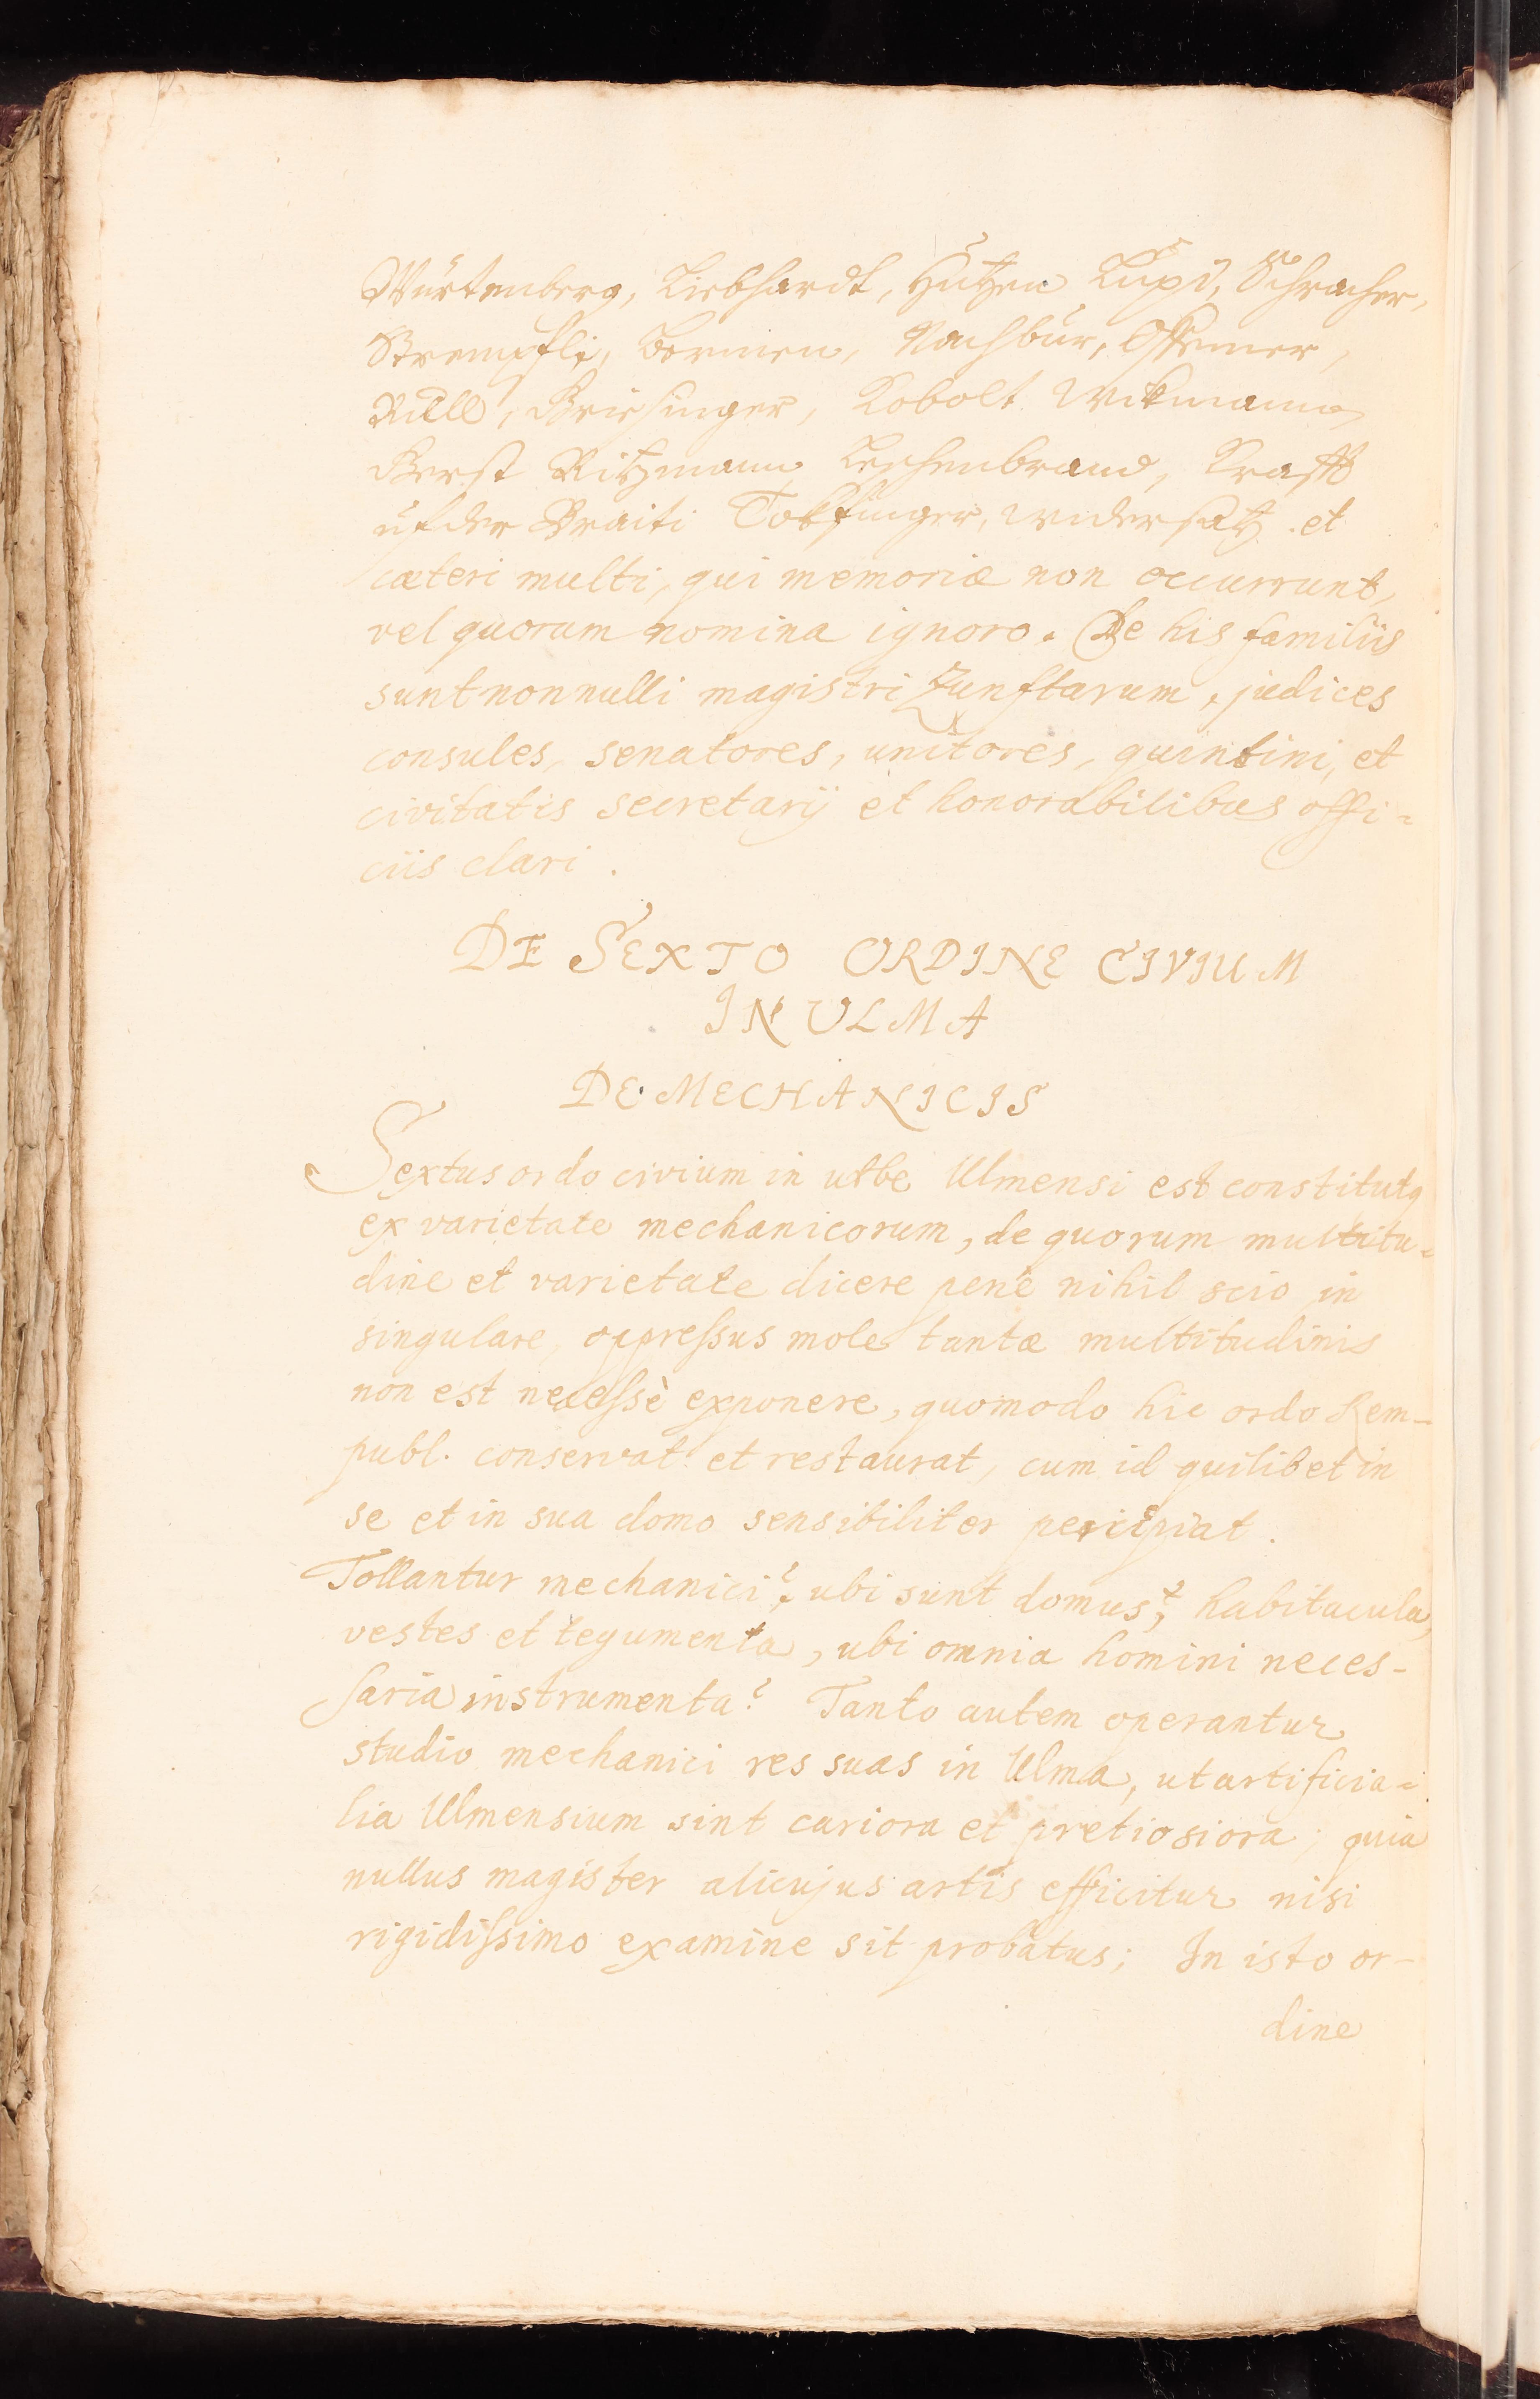 Würtenberg, Liebhardt, Hutzen Lupi, Schracher,
Strempfli, Bormen, Nachbur, Ossemer,
Rull, Griesinger, Kobolt Wikmann
Gerst Ritzmann Leschenbrand, Krafft
uf der Braiti Tokfinger, Widersatz et
cæteri multi, qui memoriæ non occurrunt,
vel quorum nomina ignoro. De his familiis
sunt nonnulli magistri Zunftarum, judices
consules, senatores, unitores, quintini, et
civitatis secretarij et honorabilibus offi-
ciis clari.
DE SEXTO ORDINE CIVIUM
IN ULMA
DE MECHANICIS
Sextus ordo civium in utbe Ulmensi est constitutq
ex varietate mechanicorum, de quorum multitu-
dine et varietate dicere penè nihil scio in
singulare, oppressus mole tantæ multitudinis
non est necessè exponere, quomodo hic ordo Rem-
publ. conservat et restaurat, cum id quilibet in
se et in sua domo sensibiliter percipiat.
Tollantur mechanici? ubi sunt domus? habitacula,
vestes et tegumenta, ubi omnia homini neces-
saria instrumenta? Tanto autem operantur
studio mechanici res suas in Ulma, ut artificia-
lia Ulmensium sint cariora et pretiosiora; quia
nullus magister alicujus artis efficitur nisi
rigidissimo examine sit probatus; In isto or-
dine